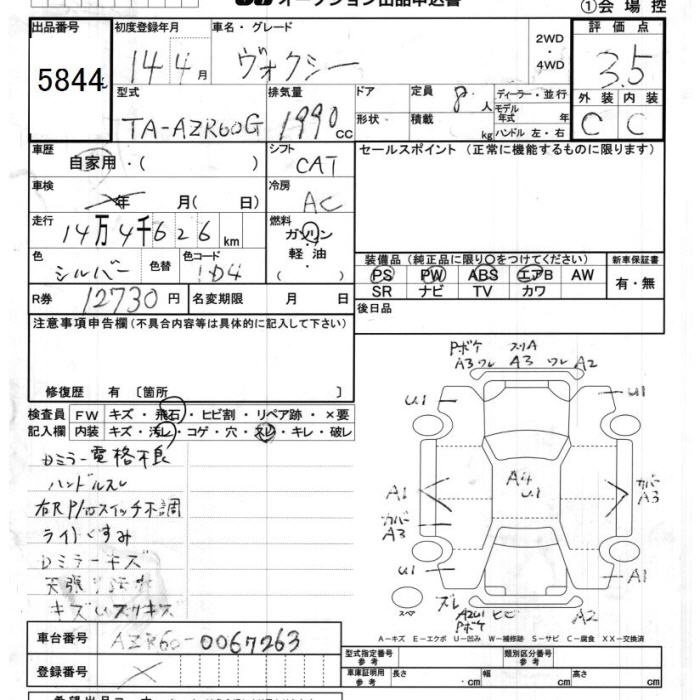 オークション出品申込書
①会場控
出品番号 初度登録年月 車名・グレード 2WD ・ 4WD 評価点
5844 14年4月 ヴォクシー 3.5
型式 排気量 ドア 定員 8人 ディーラー・並行 外装 内装
TA-AZR60G 1990cc 形状・ 積載 kg モデル年式 年 ハンドル 左・右 C C
車歴 シフト セールスポイント (正常に機能するものに限ります)
自家用・( ) CAT
車検 冷房
年 月( 日) AC
走行 燃料
14万4千626km ガソリン
色 色替 色コード 軽油
シルバー 1D4 ( )
装備品 (純正品に限り〇をつけてください) 新車保証書
PS PW ABS エアB AW 有・無
SR ナビ TV カワ
R券 12730円 名変期限 月 日
後日品
注意事項申告欄(不具合内容等は具体的に記入して下さい)
修復歴 有 〔箇所 〕
検査員 FW キズ・飛石・ヒビ割・リペア跡・×要
記入欄 内装 キズ・汚レ・コゲ・穴・スレ・キレ・破レ
Dミラー電格不良
ハンドルスレ
右R P/Wスイッチ不調
ライトくすみ
Dミラーキズ
天張り汚れ
キズUスリキズ
Pボケ スリA
A3 ワレ A3 ワレ A2
U.1 U1
A4
U.1
A1 カバー A3
カバー A3
U1 A1
ズレ
A2U1 ヒビ A2
Pボケ
スペア
A-キズ E-エクボ U-凹み W-補修跡 S-サビ C-腐食 XX-交換済
車台番号 AZR60-0067263
登録番号
型式指定番号 参考 類別区分番号 参考
車庫証明用 参考 長さ ・cm 幅 ・cm 高さ ・cm
希望出品コーナー